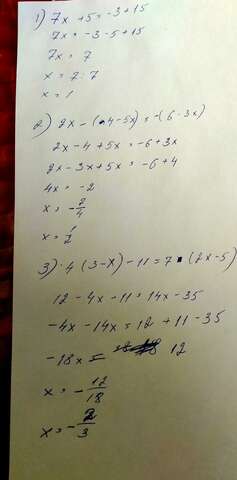 1) 7x + 5 = -3 + 15
7x = -3 - 5 + 15
7x = 7
x = 7 : 7
x = 1
2) 2x - (4 - 5x) = -(6 - 3x)
2x - 4 + 5x = -6 + 3x
2x - 3x + 5x = -6 + 4
4x = -2
x = -2/4
x = 1/2
3) 4 (3 - x) - 11 = 7 · (2x - 5)
12 - 4x - 11 = 14x - 35
-4x - 14x = 12 + 11 - 35
-18x = 12
x = -12/18
x = -2/3